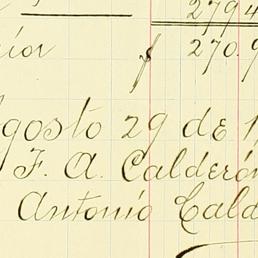 2794
rior $ 270.9
Agosto 29 de 1
F. A. Calderón
Antonio Cald